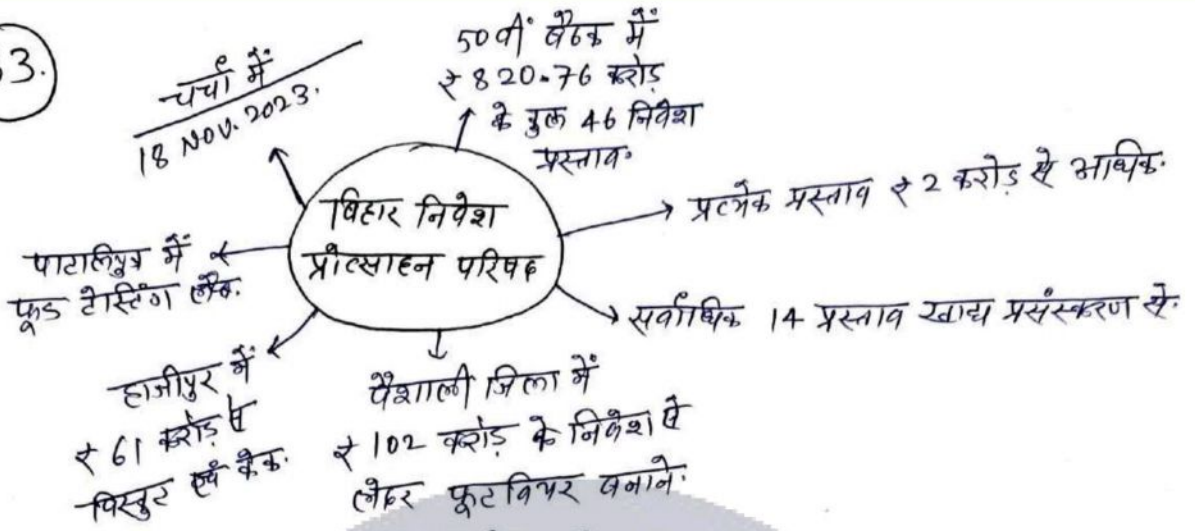 3.
चर्चा में
18 NOV. 2023.
50वीं बैठक में
₹ 820.76 करोड़
के कुल 46 निवेश
प्रस्ताव.
बिहार निवेश
प्रोत्साहन परिषद
प्रत्येक प्रस्ताव ₹ 2 करोड़ से अधिक.
सर्वाधिक 14 प्रस्ताव खाद्य प्रसंस्करण से.
वैशाली जिला में
₹ 102 करोड़ के निवेश से
लेदर फूटवियर बनाने.
हाजीपुर में
₹ 61 करोड़ से
बिस्कुट एवं केक.
पाटलिपुत्र में
फूड टेस्टिंग लैब.